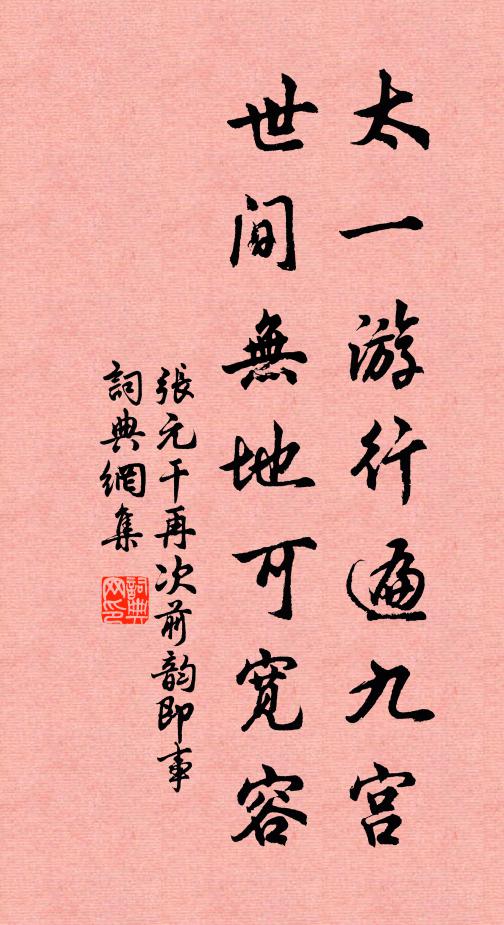 太一游行遍九宫
世间無地可寬容
張元干再次前韵即事
詞典網集
詞典网印